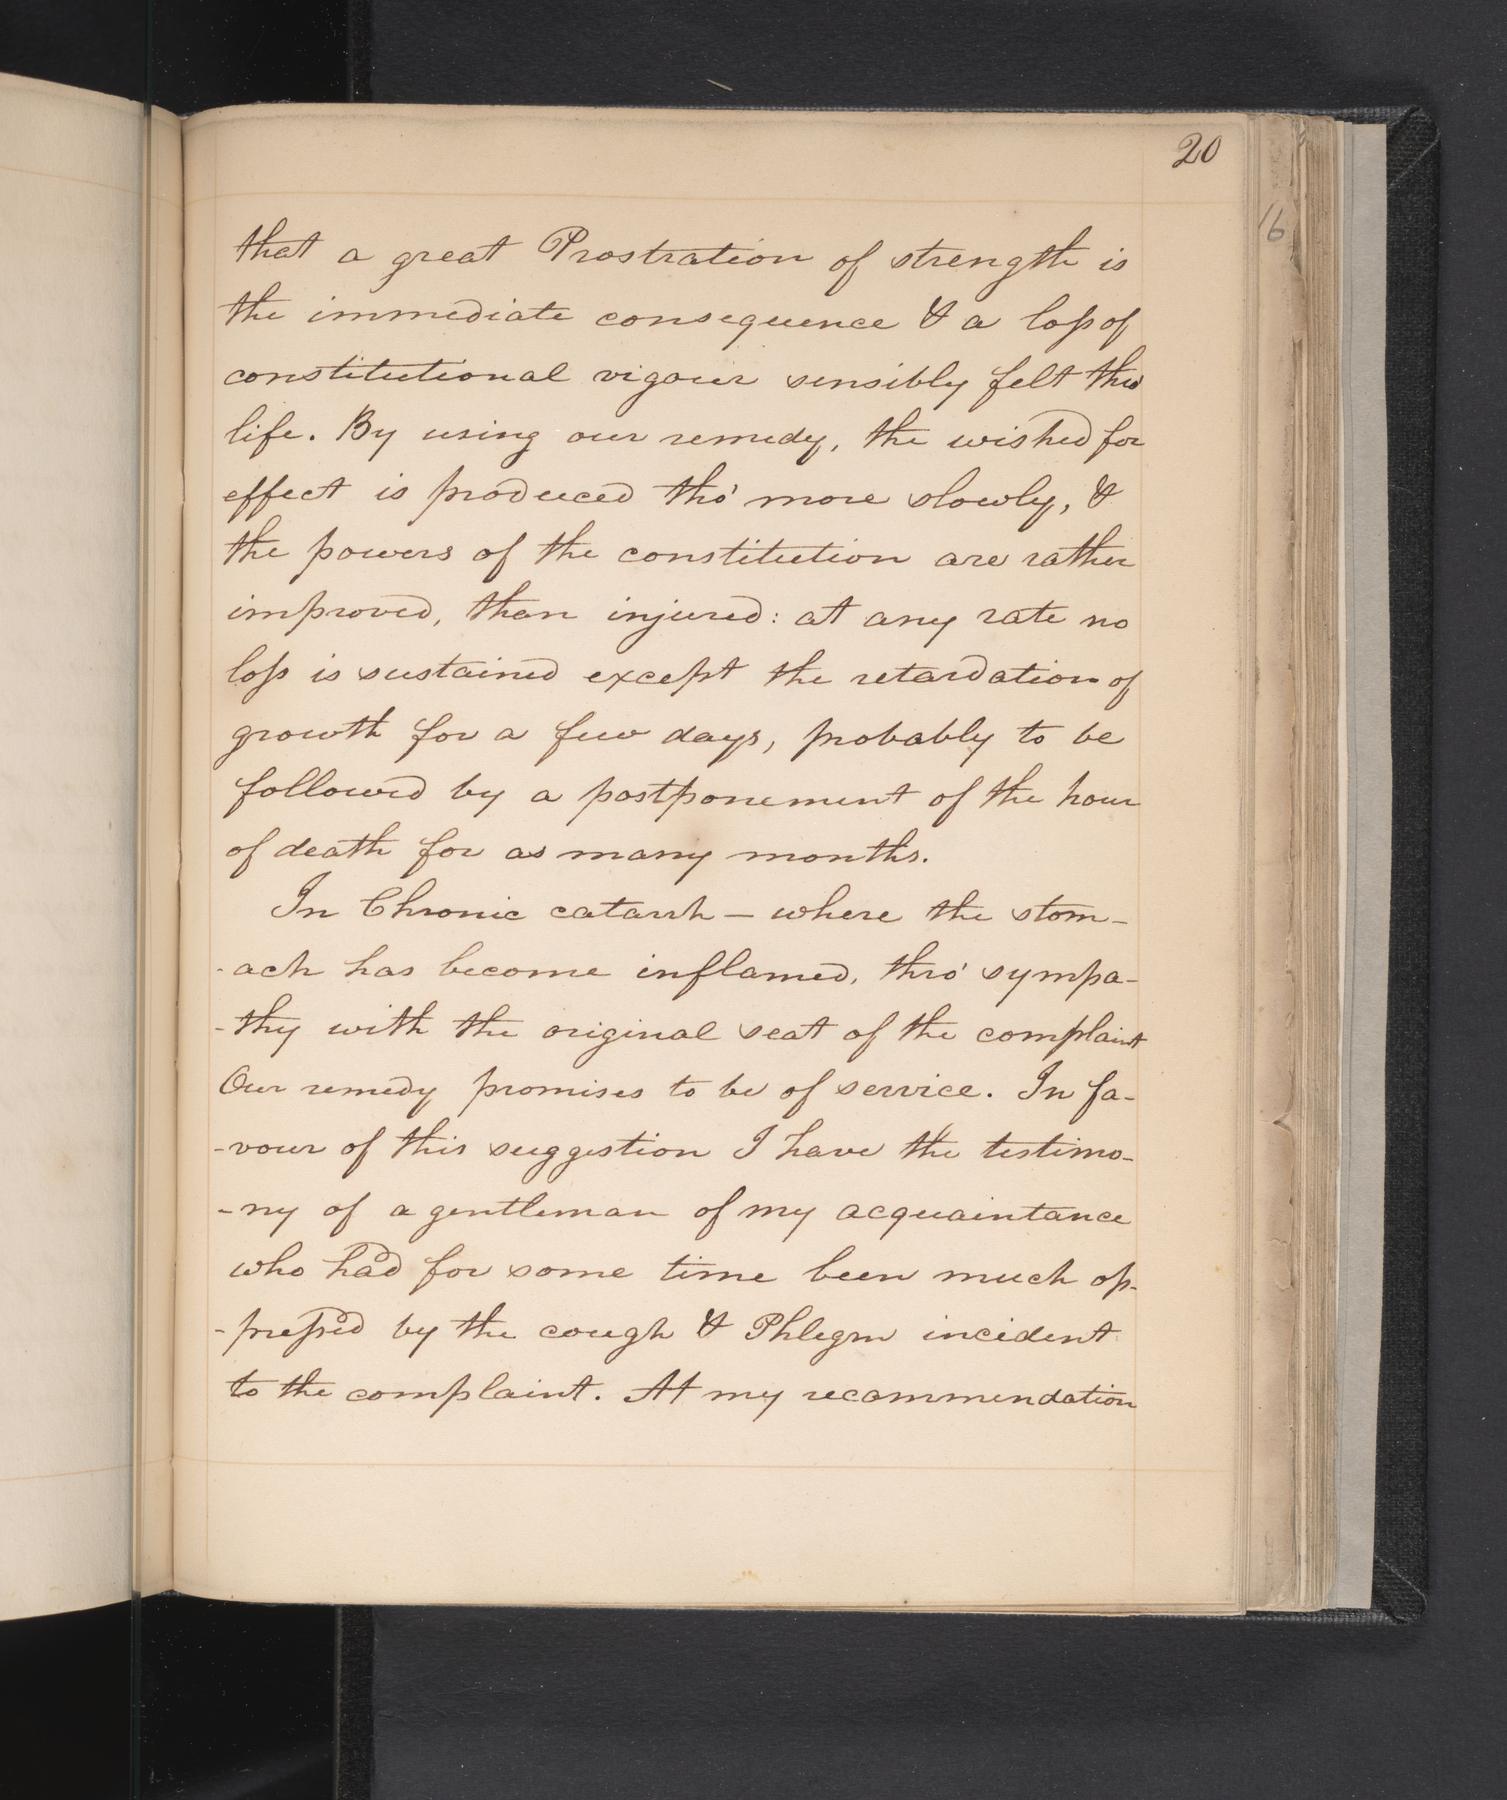 20
16
that a great Prostration of strength is
the immediate consequence & a loss of
constitutional vigour sensibly felt thro'
life. By using our remedy, the wished for
effect is produced tho' more slowly, &
the powers of the constitution are rather
improved, than injured: at any rate no
loss is sustained except the retardation of
growth for a few days, probably to be
followed by a postponement of the hour
of death for as many months.
In Chronic catarrh — where the stom-
-ach has become inflamed, thro' sympa-
-thy with the original seat of the complaint
Our remedy promises to be of service. In fa-
-vour of this suggestion I have the testimo-
-ny of a gentleman of my acquaintance
who had for some time been much op-
-press'd by the cough & Phlegm incident
to the complaint. At my recommendation